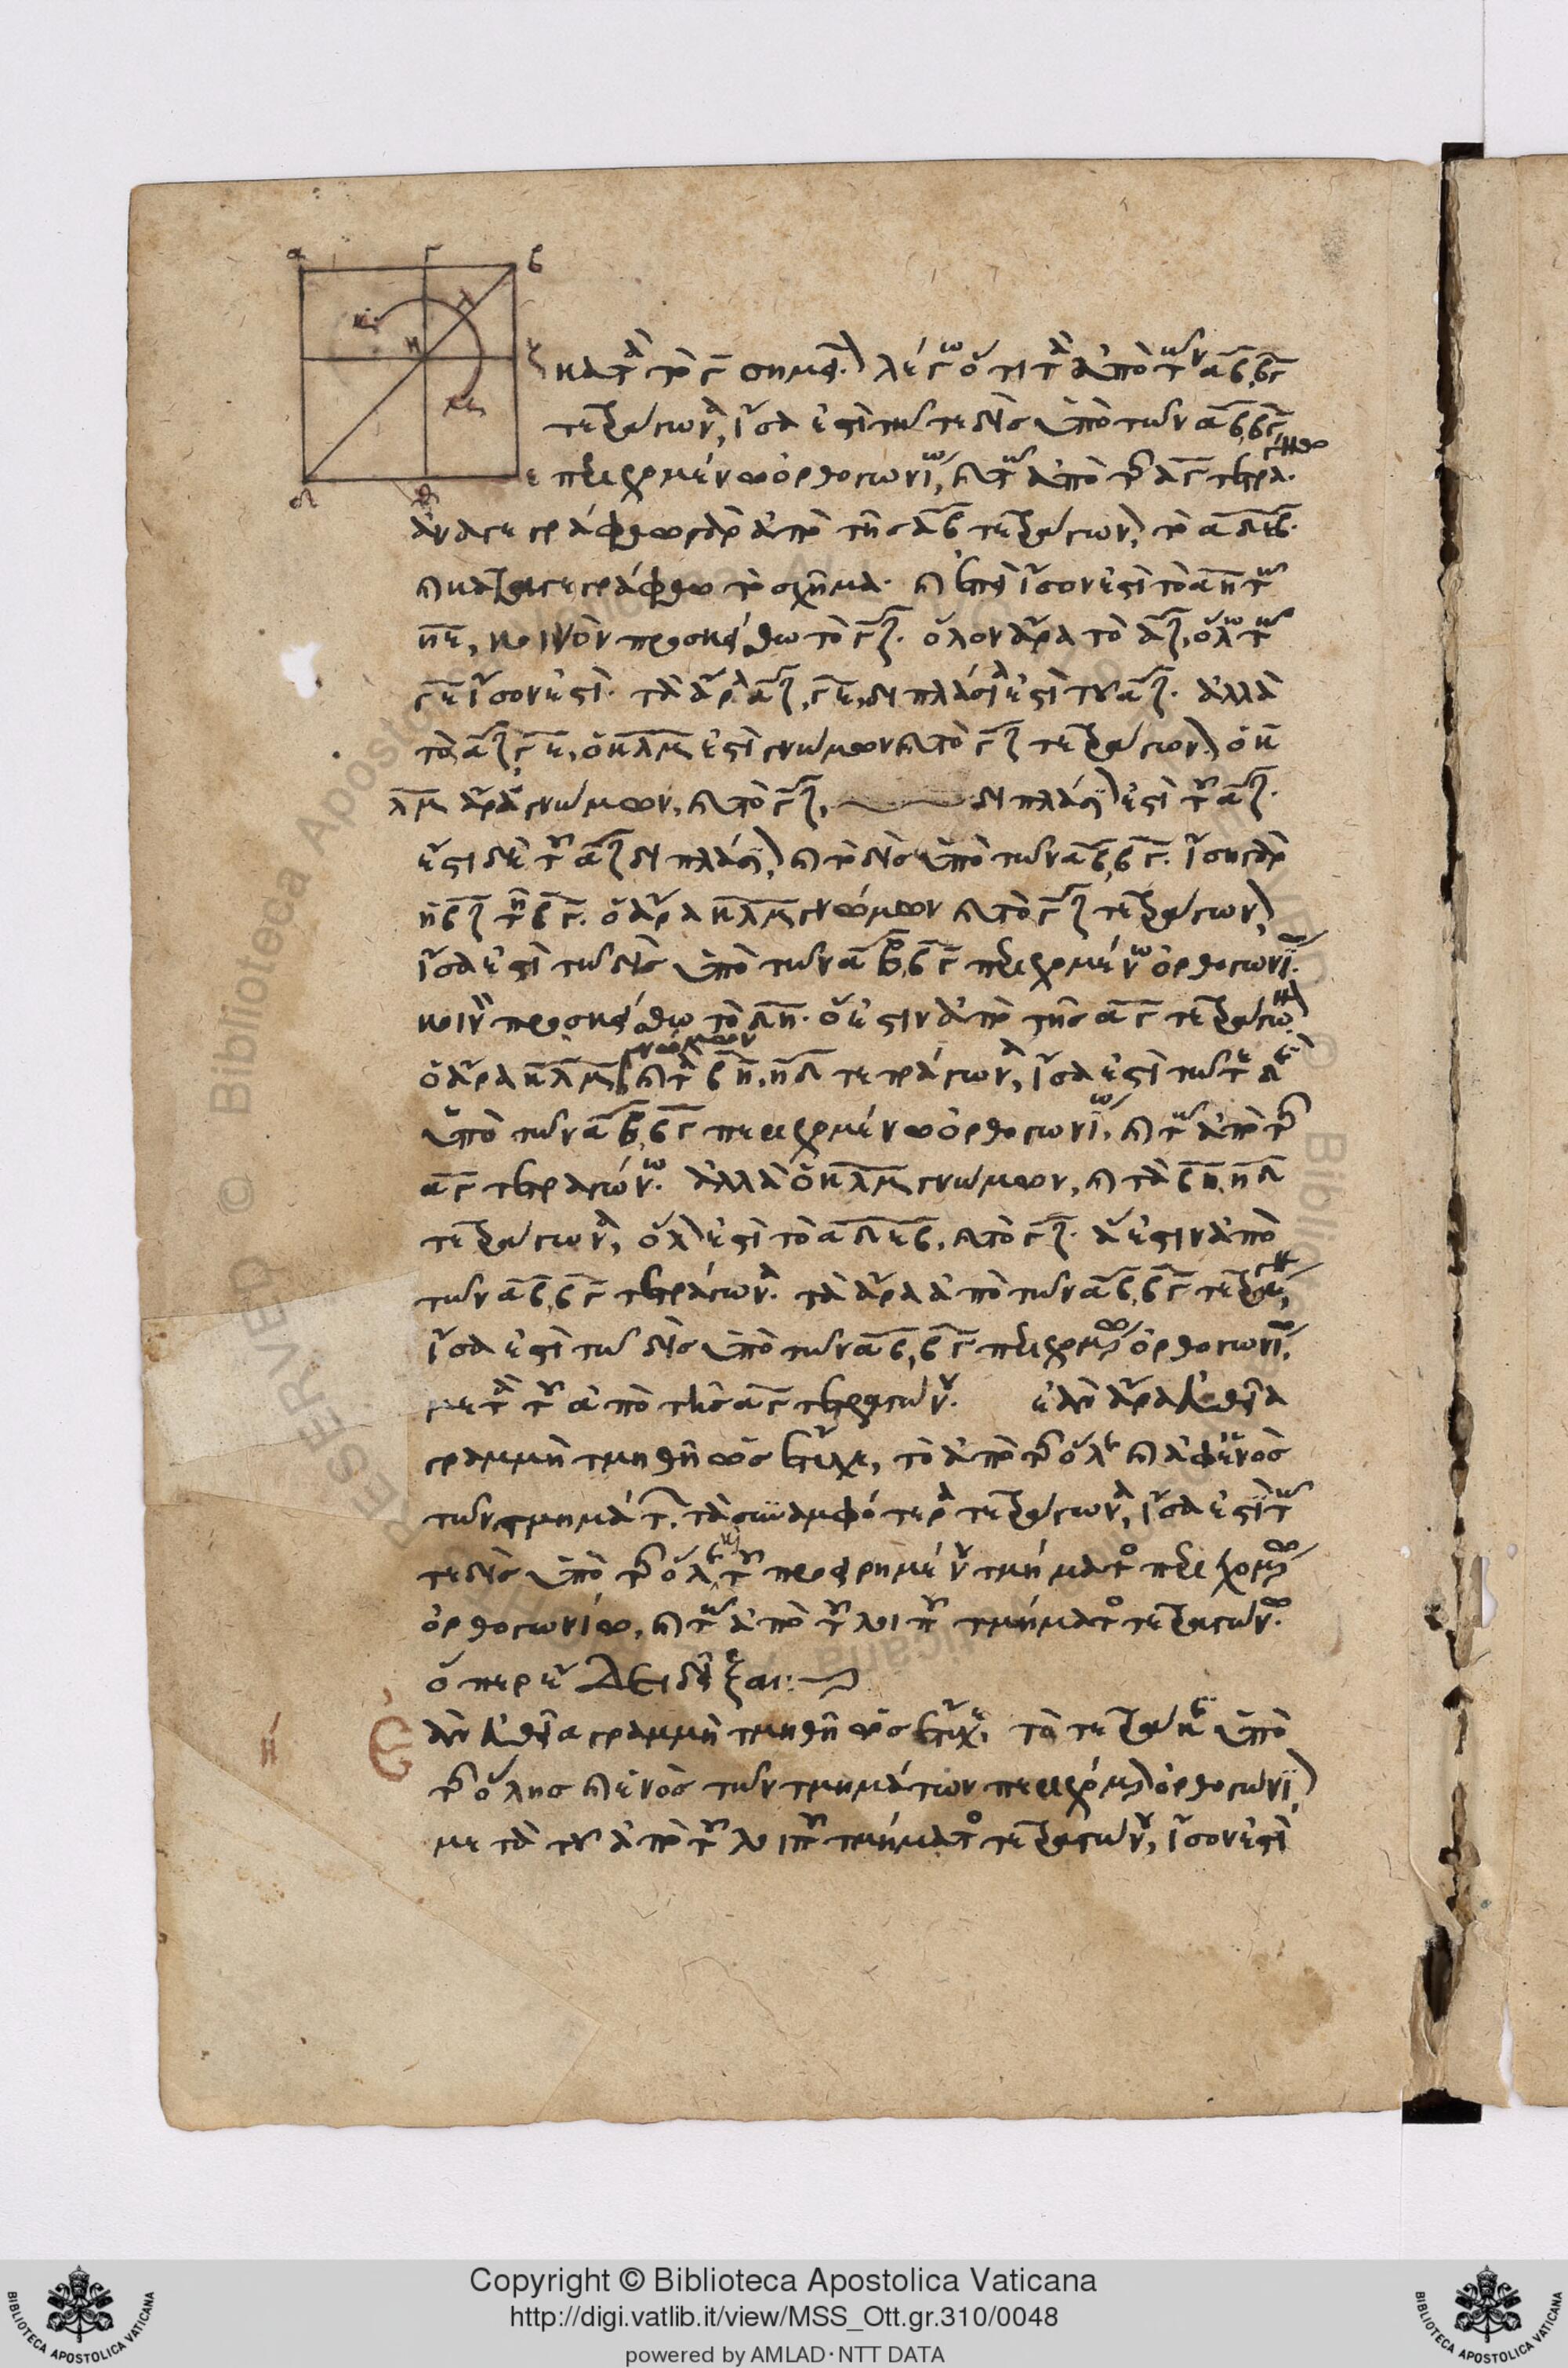 α γ β
κ λ
η ζ
μ
δ θ
κατὰ τὸ γ σημεῖον λέγω ὅτι τὰ ἀπὸ τῶν αβ βγ
τετράγωνα, ἴσα ἐστὶ τῶ τε δὶς ὑπὸ τῶν αβ βγ
ε περιεχομένω ὀρθογωνίω, καὶ τῶ ἀπὸ τῆς αγ τετραγώνω.
ἀναγεγράφθω γὰρ ἀπὸ τῆς αβ τετράγωνον, τὸ αδεβ.
καὶ καταγεγράφθω τὸ σχῆμα. καὶ ἐπεὶ ἴσον ἐστὶ τὸ αη τῶ
ηε, κοινὸν προσκείσθω τὸ γζ. ὅλον ἄρα τὸ αζ, ὅλω τῶ
γε ἴσον ἐστί. τὰ ἄρα αζ, γε, διπλάσιά ἐστι τοῦ αζ. ἀλλὰ
τὰ αζ γε, ὁ κλμ ἐστὶ γνώμων καὶ τὸ γζ τετράγωνον. ὁ κ
λμ ἄρα γνώμων, καὶ τὸ γζ, διπλάσιά ἐστι τοῦ αζ.
ἔστι δὲ τοῦ αζ διπλάσιον, καὶ τὸ δὶς ὑπὸ τῶν αβ, βγ. ἴση γὰρ
ἡ βζ τῆ βγ. ὁ ἄρα κλμ γνώμων καὶ τὸ γζ τετράγωνον,
ἴσα ἐστὶ τῶ δὶς ὑπὸ τῶν αβ, βγ περιεχομένω ὀρθογωνίω.
κοινὸν προσκείσθω τὸ δη. ὅ ἐστιν ἀπὸ τῆς αγ τετράγωνον
ὁ ἄρα κλμ γνώμων καὶ τὰ βη, ηδ τετράγωνα, ἴσα ἐστὶ τῶ τε δὶς
ὑπὸ τῶν αβ, βγ περιεχομένω ὀρθογωνίω, καὶ τῶ ἀπὸ τῆς
αγ τετραγώνω. ἀλλὰ ὁ κλμ γνώμων, καὶ τὰ βη, ηδ
τετράγωνα, ὅλον ἐστὶ τὸ αδεβ, καὶ τὸ γζ. ἅ ἐστιν ἀπὸ
τῶν αβ, βγ τετράγωνα. τὰ ἄρα ἀπὸ τῶν αβ, βγ τετράγωνα,
ἴσα ἐστὶ τῶ δὶς ὑπὸ τῶν αβ, βγ περιεχομένω ὀρθογωνίω,
μετὰ τοῦ ἀπὸ τῆς αγ τετραγώνου. ἐὰν ἄρα εὐθεῖα
γραμμὴ τμηθῆ ὡς ἔτυχε, τὸ ἀπὸ τῆς ὅλης καὶ ἀφ' ἑνὸς
τῶν τμημάτων τὰ συναμφότερα τετράγωνα, ἴσα ἐστὶ τῶ
τε δὶς ὑπὸ τῆς ὅλης καὶ τοῦ προειρημένου τμήματος περιεχομένω
ὀρθογωνίω, καὶ τῶ ἀπὸ τοῦ λοιποῦ τμήματος τετραγώνω.
ὅπερ ἔδει δεῖξαι:
η Ἐὰν εὐθεῖα γραμμὴ τμηθῆ ὡς ἔτυχε, τὸ τετράκις ὑπὸ
τῆς ὅλης καὶ ἑνὸς τῶν τμημάτων περιεχόμενον ὀρθογώνιον
μετὰ τοῦ ἀπὸ τοῦ λοιποῦ τμήματος τετραγώνου, ἴσον ἐστὶ
Copyright © Biblioteca Apostolica Vaticana
http://digi.vatlib.it/view/MSS_Ott.gr.310/0048
powered by AMLAD·NTT DATA